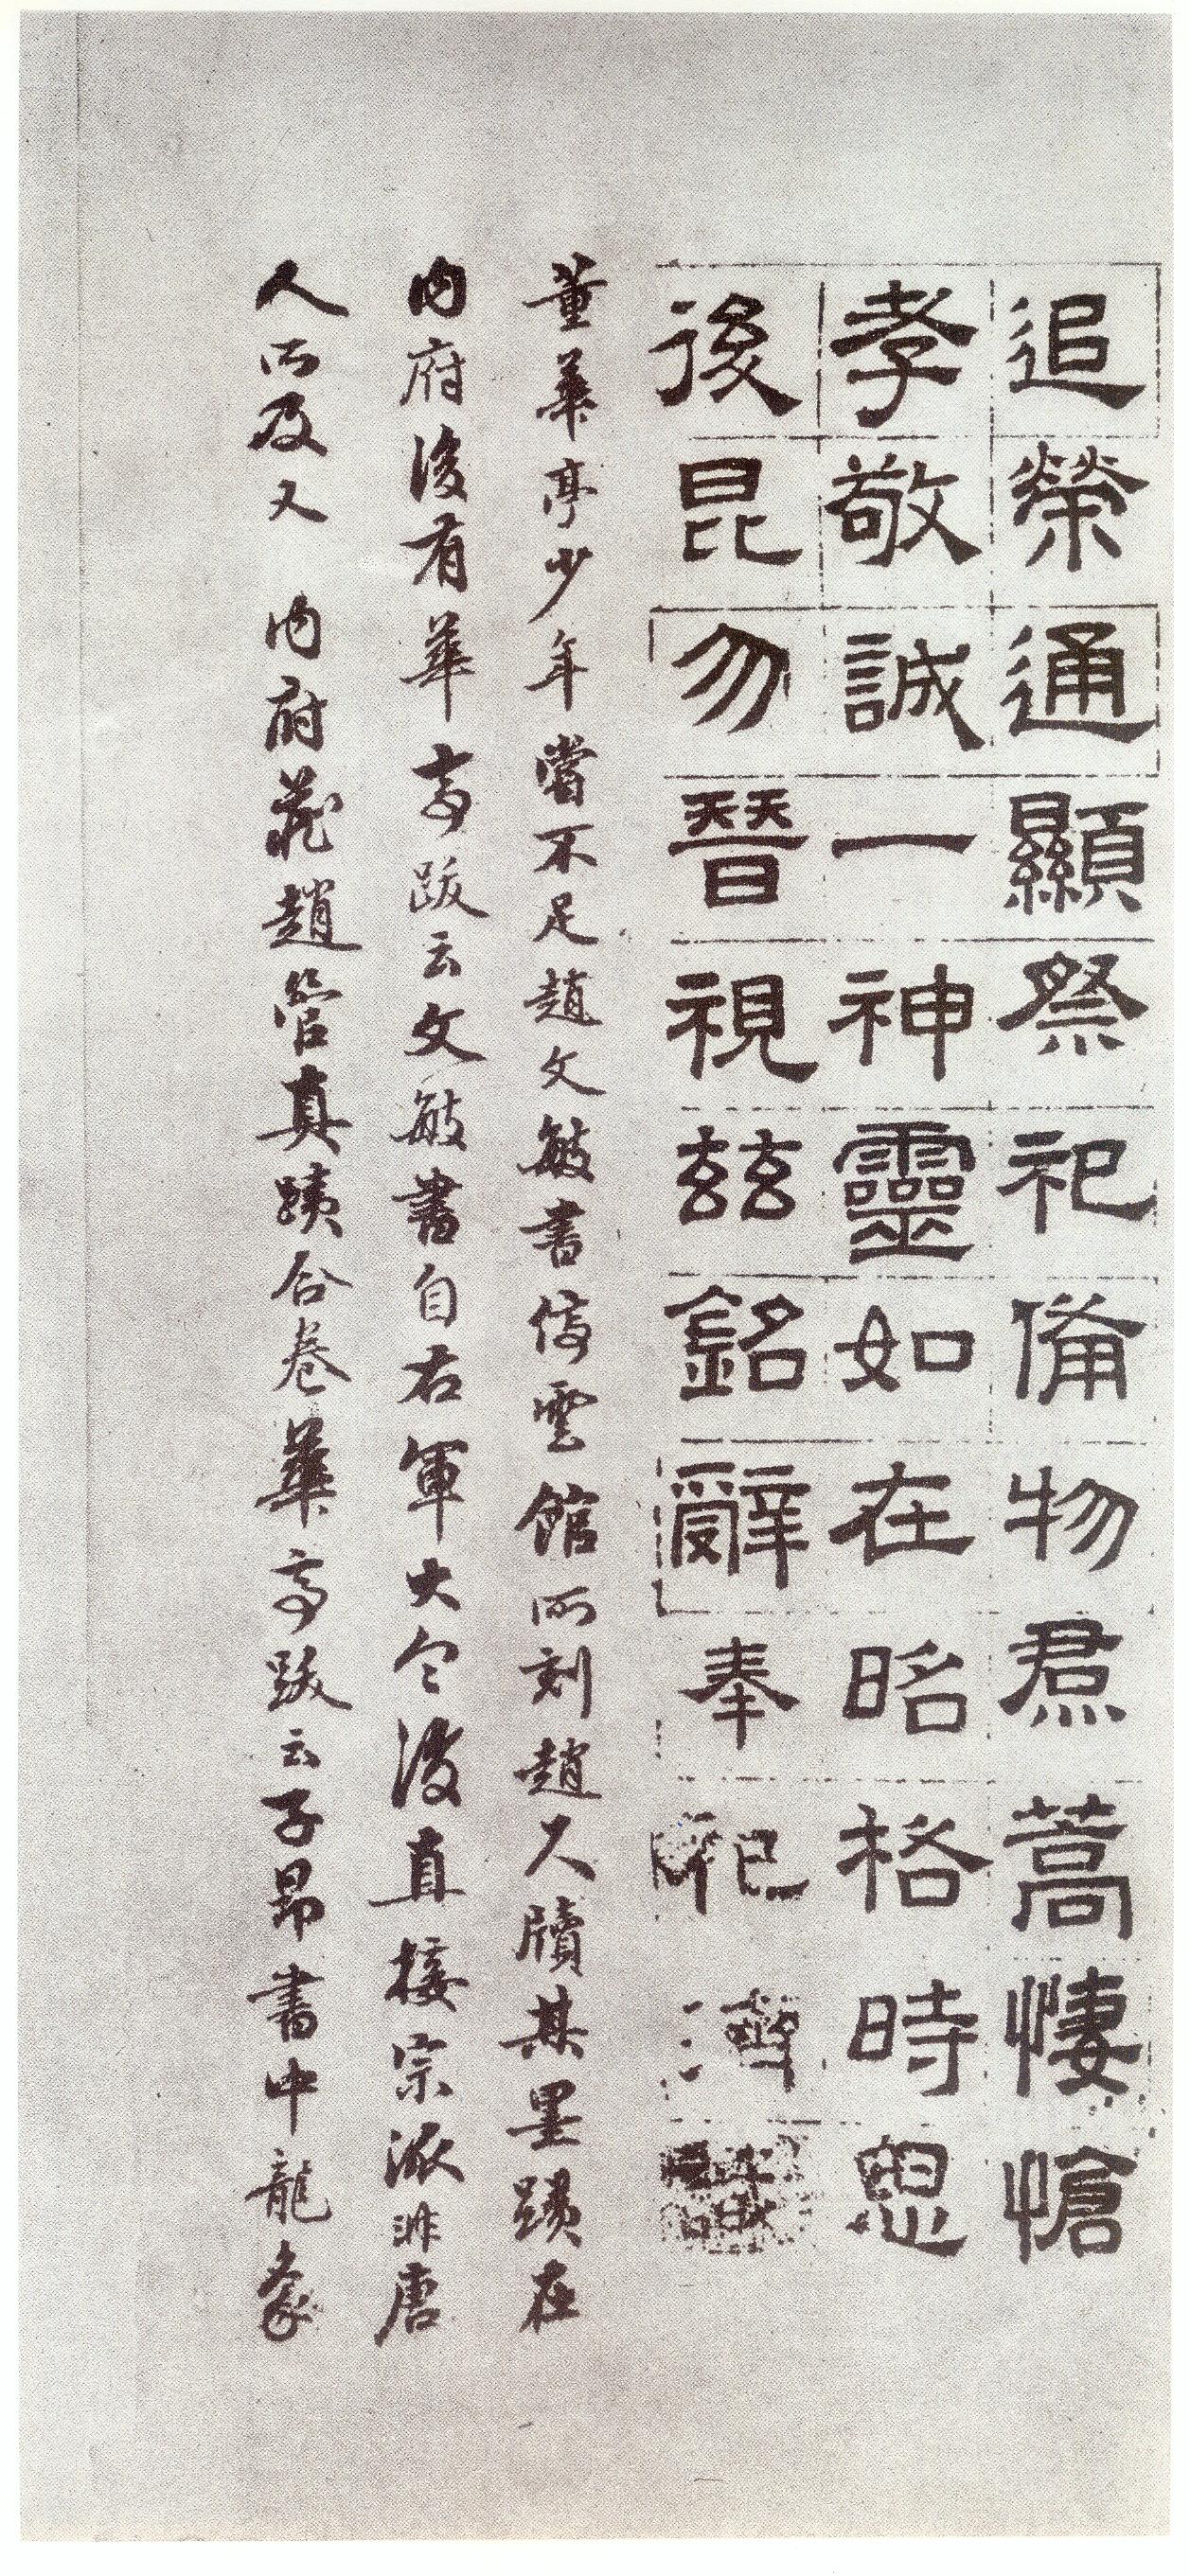 追榮通顯祭祀備物焄蒿悽愴
孝敬誠一神靈如在昭格時思
後昆勿晉視茲銘辭奉祀
董華亭少年嘗不足趙文敏書停雲館所刻趙人牘其墨蹟在
內府後有華亭跋云文敏書自右軍大令後直接宗派非唐
人所及又 內府藏趙管真蹟合卷華亭跋云子昂書中龍象